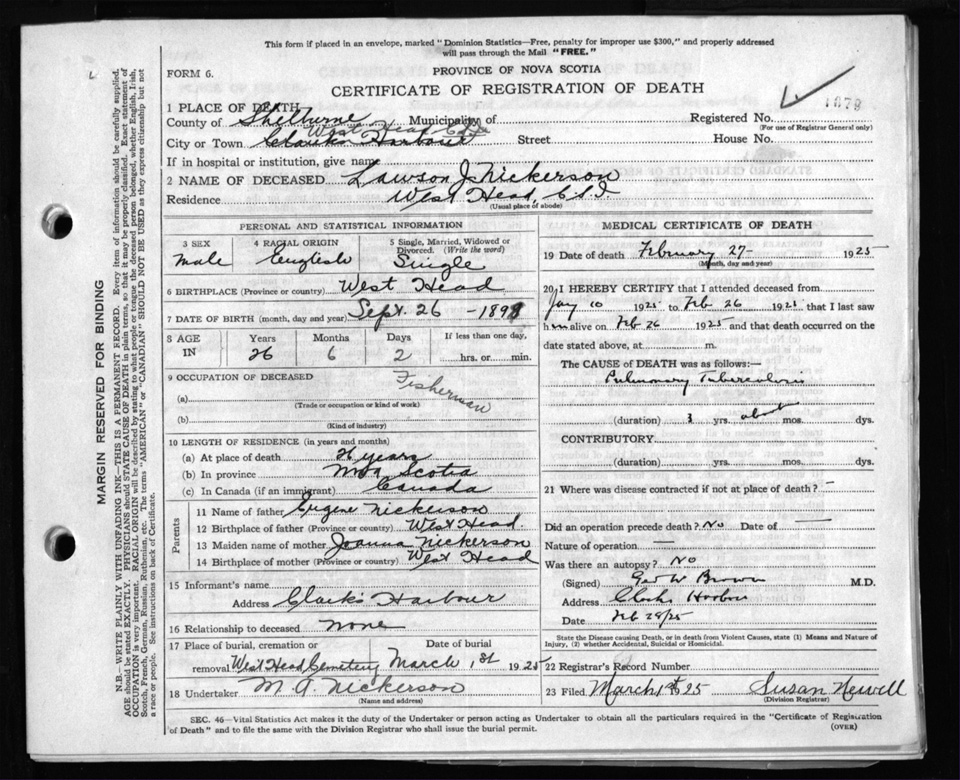 This form if placed in an envelope, marked "Dominion Statistics—Free, penalty for improper use $300," and properly addressed
will pass through the Mail "FREE."
FORM 6.
PROVINCE OF NOVA SCOTIA
CERTIFICATE OF REGISTRATION OF DEATH
1 PLACE OF DEATH
County of Shelburne Municipality of
Registered No. 1679
(For use of Registrar General only)
West Head C.S.I.
City or Town Clark's Harbour Street House No.
If in hospital or institution, give name
2 NAME OF DECEASED Lawson J. Nickerson
Residence West Head, C.S.I
(Usual place of abode)
PERSONAL AND STATISTICAL INFORMATION
3 SEX
male
4 RACIAL ORIGIN
English
5 Single, Married, Widowed or
Divorced. (Write the word)
Single
6 BIRTHPLACE (Province or country) West Head
7 DATE OF BIRTH (month, day and year) Sept. 26 - 1898
8 AGE
IN
Years
26
Months
6
Days
2
If less than one day,
hrs. or min.
9 OCCUPATION OF DECEASED
Fisherman
(a)
(Trade or occupation or kind of work)
(b)
(Kind of industry)
10 LENGTH OF RESIDENCE (in years and months)
(a) At place of death years
(b) In province Nova Scotia
(c) In Canada (if an immigrant) Canada
Parents
11 Name of father Eugene Nickerson
12 Birthplace of father (Province or country) West Head.
13 Maiden name of mother Joanna Nickerson
14 Birthplace of mother (Province or country) West Head
15 Informant's name
Address Clark's Harbour
16 Relationship to deceased none
17 Place of burial, cremation or
removal West Head Cemetery
Date of burial
March 1st 1925
18 Undertaker M. A. Nickerson
(Name and address)
MEDICAL CERTIFICATE OF DEATH
19 Date of death February 27 1925
(Month, day and year)
20 I HEREBY CERTIFY that I attended deceased from
Jany 10 1925 to Feb 26 1925 that I last saw
him alive on Feb 26 1925 and that death occurred on the
date stated above, at m.
The CAUSE of DEATH was as follows:—
Pulmonary Tuberculosis
(duration) 3 yrs. about mos. dys.
CONTRIBUTORY
(duration) yrs. mos. dys.
21 Where was disease contracted if not at place of death? —
Did an operation precede death? No Date of —
Nature of operation —
Was there an autopsy? No
(Signed) Geo W Brown M.D.
Address Clarks Harbour
Date Feb 28/25
State the Disease causing Death, or in death from Violent Causes, state (1) Means and Nature of
Injury, (2) whether Accidental, Suicidal or Homicidal.
22 Registrar's Record Number
23 Filed March 1st 25 Susan Newell
(Division Registrar)
SEC. 46—Vital Statistics Act makes it the duty of the Undertaker or person acting as Undertaker to obtain all the particulars required in the "Certificate of Registration
of Death" and to file the same with the Division Registrar who shall issue the burial permit.
(OVER)
MARGIN RESERVED FOR BINDING
N.B.—WRITE PLAINLY WITH UNFADING INK—THIS IS A PERMANENT RECORD. Every item of information should be carefully supplied.
AGE should be stated EXACTLY. PHYSICIANS should STATE CAUSE OF DEATH in plain terms, so that it may be properly classified. Exact statement of
OCCUPATION is very important. RACIAL ORIGIN will be described by stating to what people or tongue the deceased person belonged, whether English, Irish,
Scotch, French, German, Russian, Ruthenian, etc. The terms "AMERICAN" or "CANADIAN" SHOULD NOT BE USED as they express citizenship but not
a race or people. See instructions on back of Certificate.